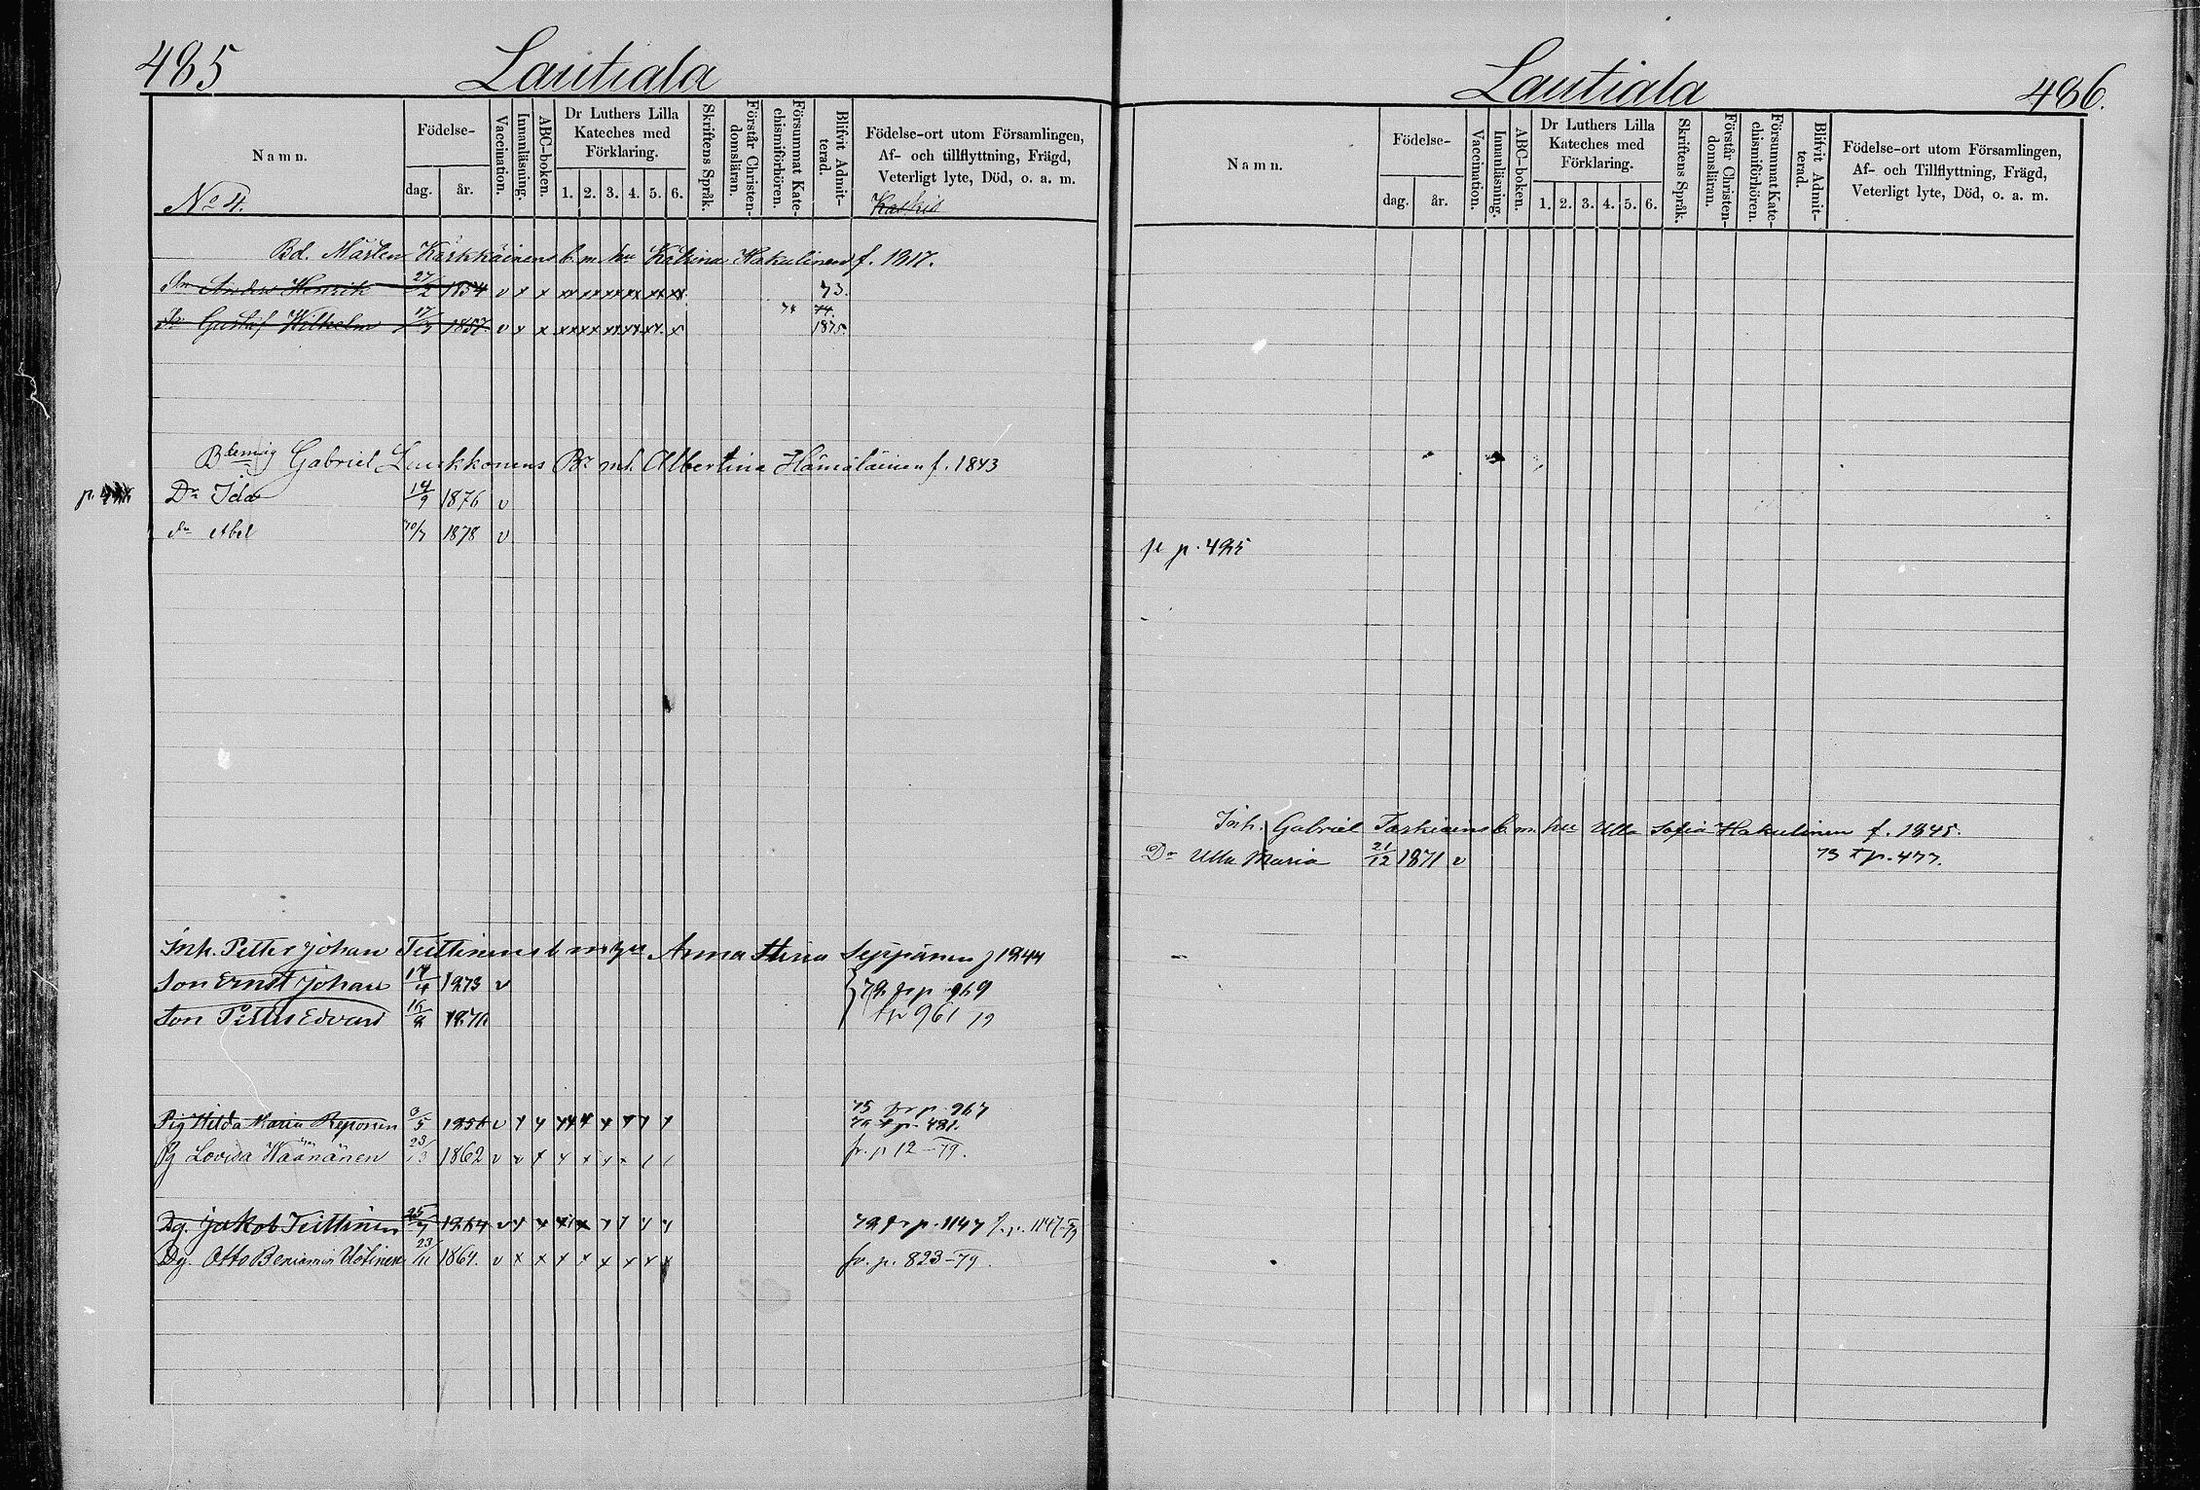 485
Lautiala
Namn.
No 4.
Födelse-
dag.
år.
Vaccination.
Innanläsning.
ABC-boken.
Dr Luthers Lilla
Kateches med
Förklaring.
1. 2. 3. 4. 5. 6.
Skriftens Språk.
Förstår Christen-
domsläran.
Försummat Kate-
chismiförhören.
Blifvit Admit-
terad.
Födelse-ort utom Församlingen,
Af- och tillflyttning, Frägd,
Veterligt lyte, Död, o. a. m.
Bd. Mårten Karkkäinens b. m. hu Katrina Hakulinen f. 1817.
Sn Anders Henrik 27/2 1854 v x x xx xx xx xx xx xx 73.
74.
Sn Gustaf Wilhelm 1857. v x x xx xx xx xx xx. x 1875.
Gabriel Luukkonens Albertina Hämäläinen f. 1843
Dr Ida 14/9 1876 v
Sn Abel 1878 v
Inh. Petter Johan Tuttinens b m hu Anna Stina Seppänen f 1844
Son Ernst Johan 14/4 1873 v 78 fr p 969
Son Petter Edvard tp 961
75 fr p. 967
Pig Hilda Maria Reponen 1856 v x x xx x x x x x p. 481.
Pg Lovisa Väänänen 23/3 1862 v v x x x x x / / fr. p 12 – 79.
Dg. Jakob Tuttinen 25/7 1864 v x x x x x x x x 78 fr p. 1147 fr. p. 1147-79
Dg. Otto Beniamin Ustinen 23/11 1861. v x x x x x x x x fr. p. 823 – 79.
Lautiala
486.
Namn.
Födelse-
dag.
år.
Vaccination.
Innanläsning.
ABC-boken.
Dr Luthers Lilla
Kateches med
Förklaring.
1. 2. 3. 4. 5. 6.
Skriftens Språk.
Förstår Christen-
domsläran.
Försummat Kate-
chismiförhören.
Blifvit Admit-
terad.
Födelse-ort utom Församlingen,
Af- och Tillflyttning, Frägd,
Veterligt lyte, Död, o. a. m.
p. 485
Inh. Gabriel Tarkiainens b. m. hu Ulla Sofia Hakulinen f. 1845.
Dr Ulla Maria 21/12 1871 v 73 t p. 477.